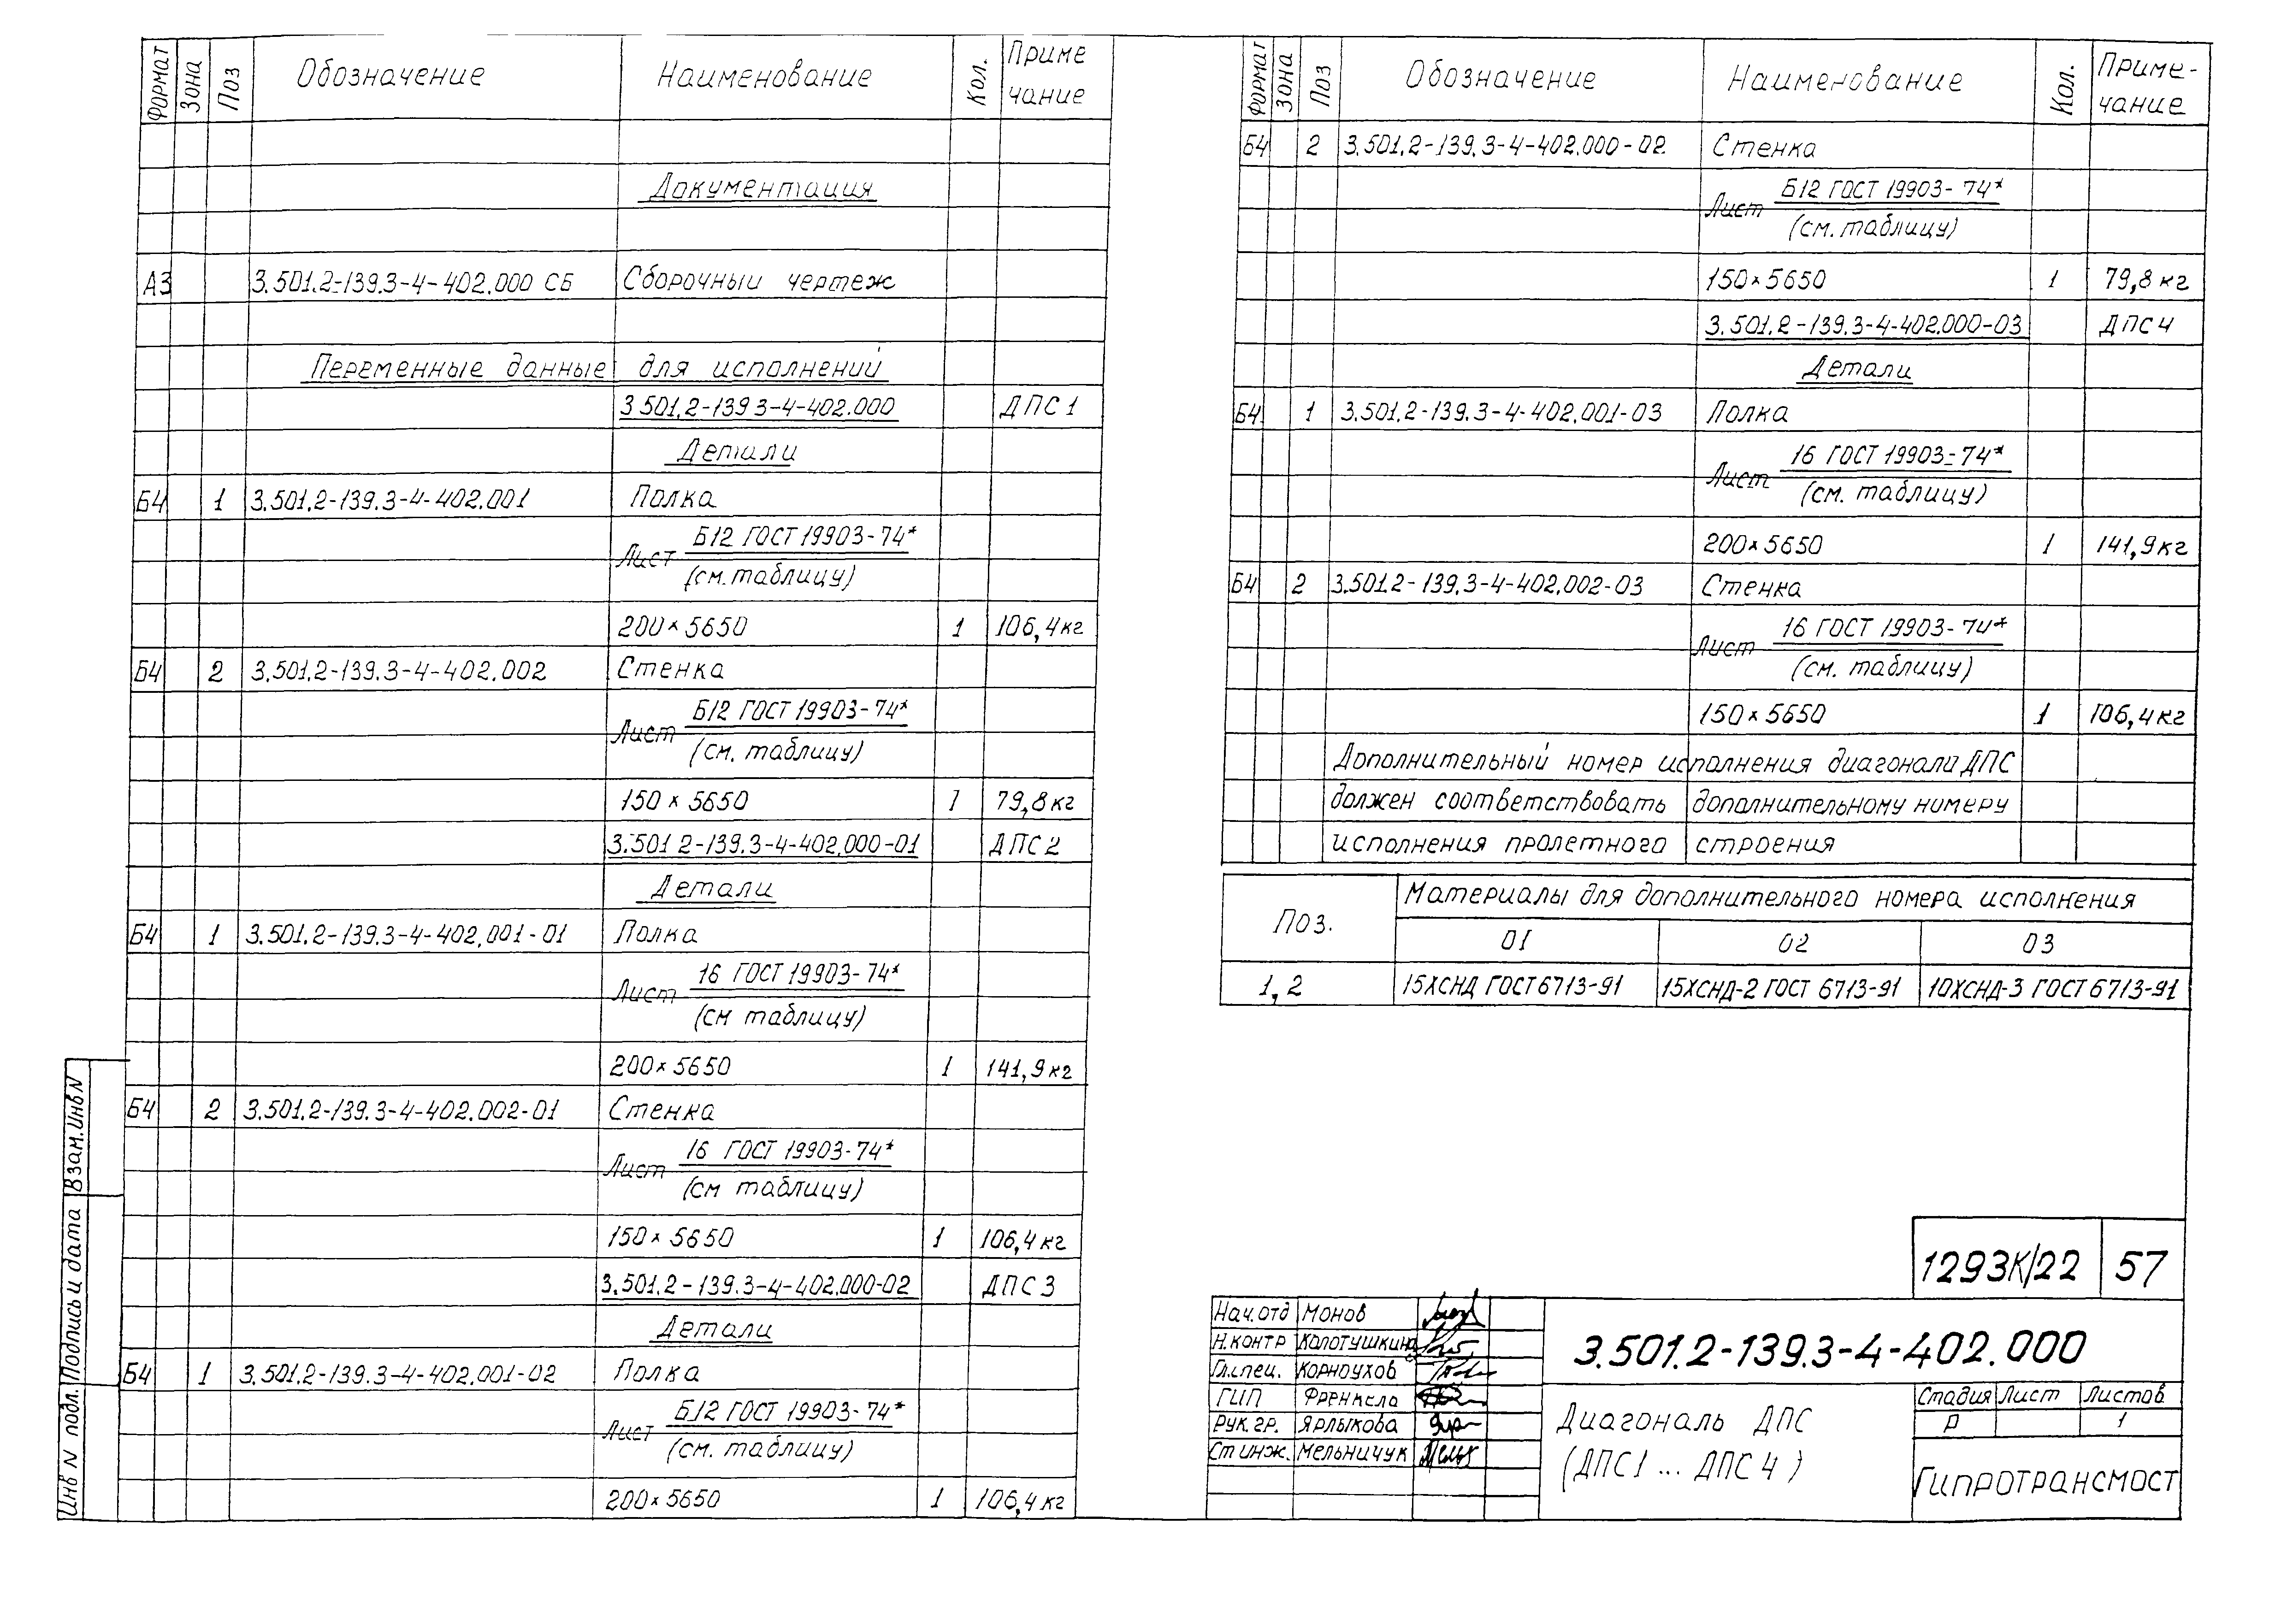 Формат Зона Поз Обозначение Наименование Кол. Приме
чание
Документация
А3 3.501.2-139.3-4-402.000 СБ Сборочный чертеж
Переменные данные для исполнений
3 501.2-139 3-4-402.000 ДПС 1
Детали
Б4 1 3.501.2-139.3-4-402.001 Полка
Лист Б12 ГОСТ 19903-74*
(см. таблицу)
200×5650 1 106,4 кг
Б4 2 3.501.2-139.3-4-402.002 Стенка
Лист Б12 ГОСТ 19903-74*
(см. таблицу)
150×5650 1 79,8 кг
3.501 2-139.3-4-402.000-01 ДПС 2
Детали
Б4 1 3.501.2-139.3-4-402.001-01 Полка
Лист 16 ГОСТ 19903-74*
(см таблицу)
200×5650 1 141,9 кг
Б4 2 3.501.2-139.3-4-402.002-01 Стенка
Лист 16 ГОСТ 19903-74*
(см таблицу)
150×5650 1 106,4 кг
3.501.2-139.3-4-402.000-02 ДПС 3
Детали
Б4 1 3.501.2-139.3-4-402.001-02 Полка
Лист Б12 ГОСТ 19903-74*
(см. таблицу)
200×5650 1 106,4 кг
Инв N подл. Подпись и дата Взам.Инв N
Формат Зона Поз Обозначение Наименование Кол. Приме-
чание
Б4 2 3.501.2-139.3-4-402.000-02 Стенка
Лист Б12 ГОСТ 19903-74*
(см. таблицу)
150×5650 1 79,8 кг
3.501.2-139.3-4-402.000-03 ДПС 4
Детали
Б4 1 3.501.2-139.3-4-402.001-03 Полка
Лист 16 ГОСТ 19903-74*
(см. таблицу)
200×5650 1 141,9 кг
Б4 2 3.501.2-139.3-4-402.002-03 Стенка
Лист 16 ГОСТ 19903-74*
(см. таблицу)
150×5650 1 106,4 кг
Дополнительный номер исполнения диагонали ДПС
должен соответствовать дополнительному номеру
исполнения пролетного строения
Поз. Материалы для дополнительного номера исполнения
01 02 03
1,2 15ХСНД ГОСТ 6713-91 15ХСНД-2 ГОСТ 6713-91 10ХСНД-3 ГОСТ 6713-91
1293К/22 57
Нач.отд Монов
Н.контр Колотушкина
Гл.спец. Корноухов
ГИП Френкель
Рук.гр. Ярлыкова
Ст инж. Мельничук
3.501.2-139.3-4-402.000
Диагональ ДПС
(ДПС 1 ... ДПС 4)
Стадия Лист Листов
Р 1
Гипротрансмост